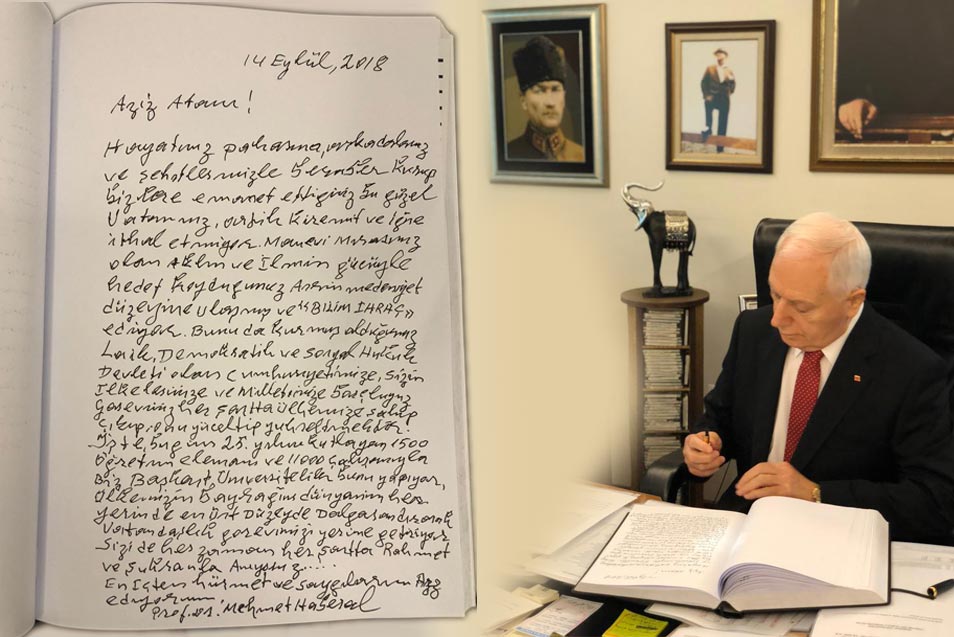 14 Eylül, 2018
Aziz Atam!
Hayatınız pahasına, arkadaşlarınız
ve şehitlerimizle beraber kurup
bizlere emanet ettiğiniz bu güzel
Vatanımız, artık kiremit ve iğne
ithal etmiyor. Manevi Mirasınız
olan Aklın ve İlmin gücüyle
hedef koyduğunuz Asrın medeniyet
düzeyine ulaşmış ve "BİLİM İHRAÇ"
ediyor. Bunu da kurmuş olduğunuz
Laik, Demokratik ve Sosyal Hukuk
Devleti olan Cumhuriyetimize, Sizin
İlkelerinize ve Milletimize borçluyuz
Görevimiz her şartta ülkemize sahip
çıkıp, onu yüceltip yükseltmektir.
İşte, bugün 25. yılını kutlayan 1500
Öğretim elemanı ve 11000 çalışanıyla
Biz Başkent Üniversiteliler bunu yapıyor,
Ülkemizin bayrağını dünyanın her
yerinde en üst Düzeyde Dalgalandırarak
Vatandaşlık görevimizi yerine getiriyor
Sizi de her zaman her şartta Rahmet
ve şükranla Anıyoruz.....
En içten hürmet ve saygılarımı Arz
ediyorum
Prof. Dr. Mehmet Haberal